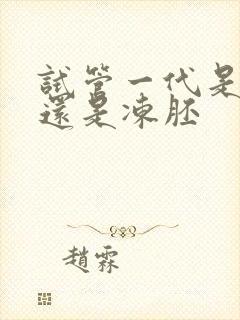 試管一代是
還是凍胚
趙霖